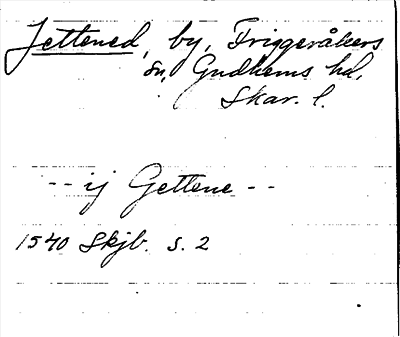 Jettened, by, Friggeråkers
sn, Gudhems hd,
Skar. l.
-- ij Gettene --
1540 Skjb. s. 2